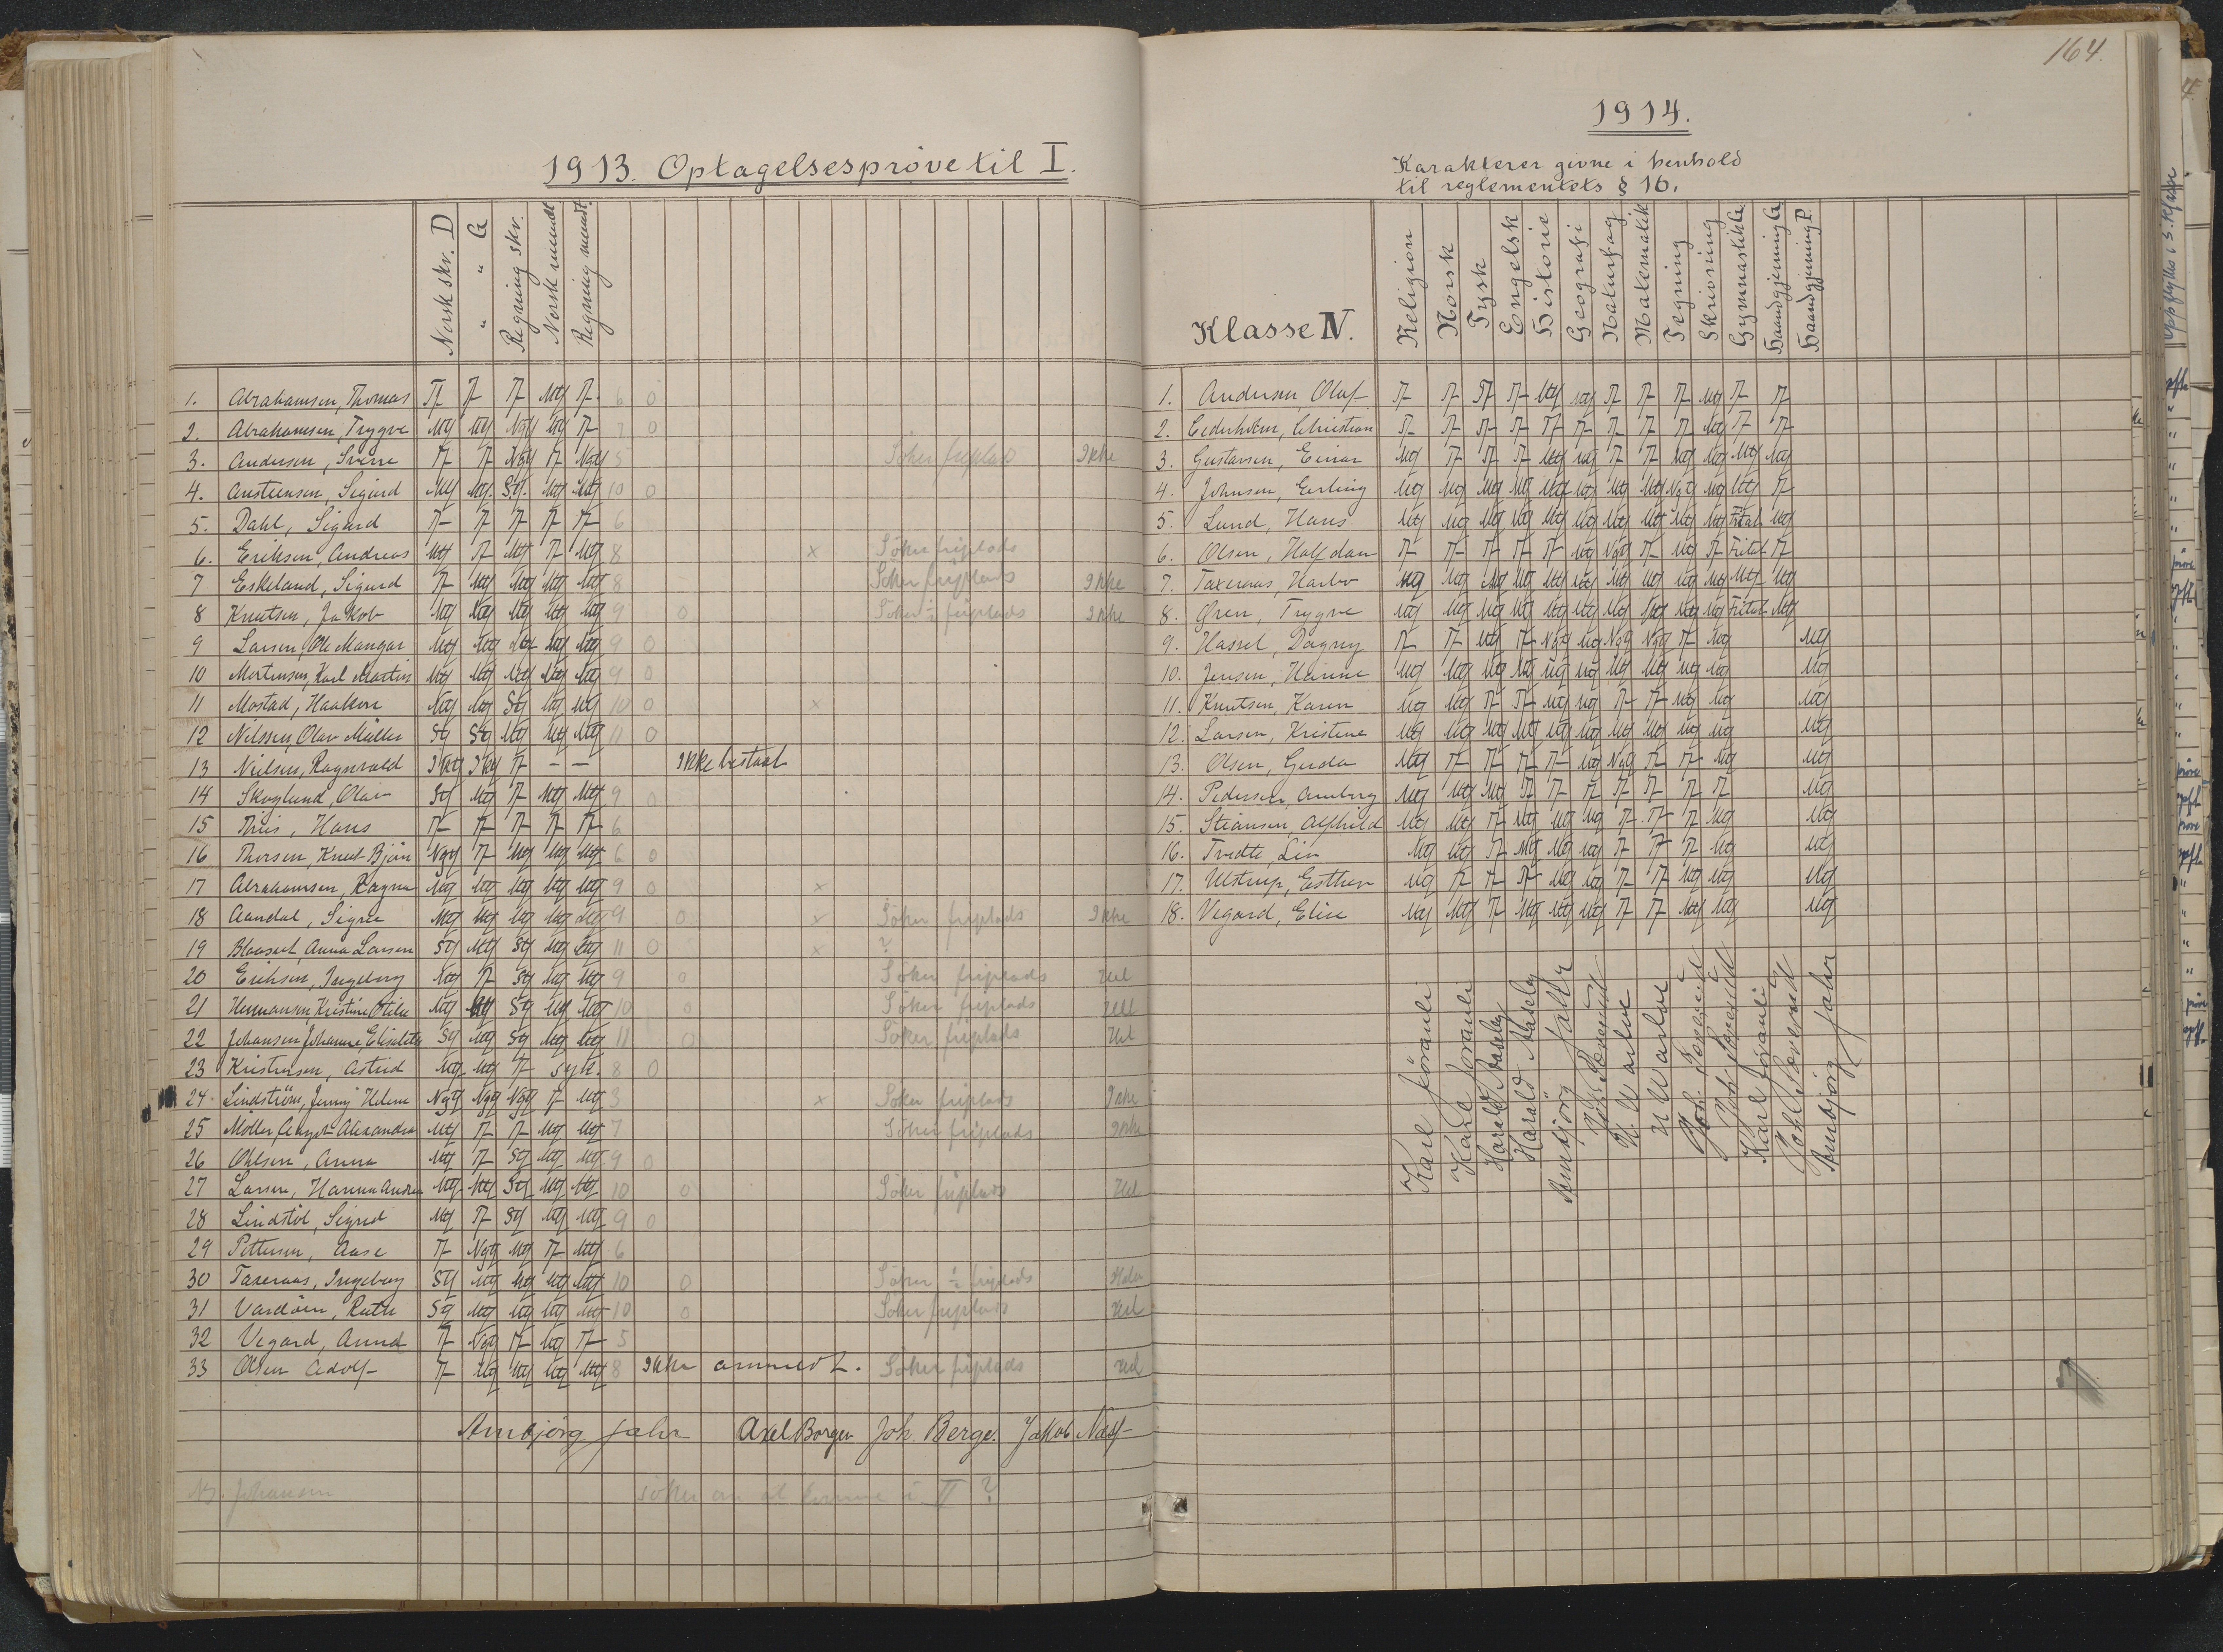 1913. Optagelsesprøve til I.
Norsk skr. D
" " G
Regning skr.
Norsk mundt.
Regning mundt.
1. Abrahamsen, Thomas T T T Mtg T 6 0
2. Abrahamsen, Trygve Mtg Mtg Ngtg Mtg T 7 0
3. Andersen, Sverre T T Ngtg T Ngtg 5 Søker friplads Ikke
4. Austeensen, Sigurd Mtg Mtg. Stg. Mtg Mtg 10 0
5. Dahl, Sigurd T T T T T 6
6. Eriksen, Andreas Mtg T Mtg T Mtg 8 x Søker friplads
7 Eskeland, Sigurd T Mtg Mtg Mtg Mtg 8 Søker friplads Ikke
8 Knutsen, Jakob Mtg Mtg Mtg Mtg Mtg 9 0 Søker ½ friplads Ikke
9 Larsen, Ole Mangar Mtg Mtg Mtg Mtg Mtg 9 0
10 Mortensen, Karl Martin Mtg Mtg Mtg Mtg Mtg 9 0
11 Mostad, Haakon Mtg Mtg Stg Mtg Mtg 10 0 x
12 Nilssen, Olav Møller Stg Stg Mtg Mtg Mtg 11 0
13 Nielsen, Ragnvald Iktg Iktg T - - Ikke bestaat
14 Skoglund, Olav Stg Mtg T Mtg Mtg 9 0
15 Thiis, Hans T T T T T 6
16 Thorsen, Knut Bjørn Ngtg T Mtg Mtg Mtg 6 0
17 Abrahamsen, Ragna Mtg Mtg Mtg Mtg Mtg 9 0 x
18 Aandal, Signe Mtg Mtg Mtg Mtg Mtg 9 0 x Søker friplads Ikke
19 Anna Larsen Stg Mtg Stg Mtg Mtg 11 0 x ?
20 Eriksen, Ingeborg Mtg T Stg Mtg Mtg 9 0 Søker friplads Hel
21 Hermansen, Kristine Otilie Mtg Mtg Stg Mtg Mtg 10 0 Søker friplads Hel
22 Johansen, Johanne Elisabeth Stg Mtg Stg Mtg Mtg 11 0 Søker friplads Hel
23 Kristensen, Astrid Mtg Mtg T syk. 8 0
24 Lindstrøm, Jenny Helene Ngtg Ngtg Ngtg T Mtg 3 x Søker friplads Ikke
25 Møller, Aagot Alexandra Mtg T T Mtg Mtg 7 Søker friplads Ikke
26 Ohlsen, Anna Mtg T Stg Mtg Mtg 9 0
27 Larsen, Hanna Andrea Mtg Mtg Stg Mtg Mtg 10 0 Søker friplads Hel
28 Lindstøl, Sigrid Mtg T Stg Mtg Mtg 9 0
29 Pettersen, Aase T Ngtg Mtg T Mtg 6
30 Taxeraas, Ingeborg Stg Mtg Mtg Mtg Mtg 10 0 Søker ½ friplads Halv
31 Vardøen, Ruth Stg Mtg Mtg Mtg Mtg 10 0 Søker friplads Hel
32 Vegard, Aunund T Ngtg T Mtg T 5
33 Olsen Adolf T Mtg Mtg Mtg Mtg 8 Ikke anmeldt. Søker friplads Hel
Arnbjørg Jahr Axel Borgen Joh. Berge. Jakob Næss
NB. Johansen søker om at komme i II ?
164.
1914.
Karakterer givne i henhold
til reglementets § 16.
Klasse IV.
Religion
Norsk
Tysk
Engelsk
Historie
Geografi
Naturfag
Matematik
Tegning
Skrivning
Gymnastik G.
Haandgjerning G.
Haandgjerning P.
1. Andersen, Olaf T T T T Mtg Mtg T T T Mtg T T
2. Cederholm, Christian T T T T T T T T T Mtg T T
3. Gustavsen, Einar Mtg T T T Mtg Mtg T T Mtg Mtg Mtg Mtg
4. Johnsen, Erling Mtg Mtg Mtg Mtg Mtg Mtg Mtg Mtg Ngtg Mtg Mtg T
5. Lund, Hans Mtg Mtg Mtg Mtg Mtg Mtg Mtg Mtg Mtg Mtg Fritat Mtg
6. Olsen, Halfdan T T T T T Mtg Ngtg T Mtg T Fritat T
7. Taxeraas, Harbo Mtg Mtg Mtg Mtg Mtg Mtg Mtg Mtg Mtg Mtg Mtg Mtg
8. Øren, Trygve Mtg Mtg Mtg Mtg Mtg Mtg Mtg Mtg Mtg Mtg Fritat Mtg
9. Hassel, Dagny T T Mtg T Ngtg Mtg Ngtg Ngtg T Mtg Mtg
10. Jensen, Hanne Mtg Mtg Mtg Mtg Mtg Mtg Mtg Mtg Mtg Mtg Mtg
11. Knutsen, Karen Mtg Mtg T T Mtg Mtg T T Mtg Mtg Mtg
12. Larsen, Kristine Mtg Mtg Mtg Mtg Mtg Mtg Mtg Mtg Mtg Mtg Mtg
13. Olsen, Gerda Mtg T T T T Mtg Ngtg T T Mtg Mtg
14. Pedersen, Amborg Mtg Mtg Mtg T T T T T T T Mtg
15. Stiansen, Alfhild Mtg Mtg T Mtg Mtg Mtg T T T Mtg Mtg
16. Tvedte, Liv Mtg Mtg T Mtg Mtg Mtg T T T Mtg Mtg
17. Ulstrup, Esther Mtg T T T Mtg Mtg T T Mtg Mtg Mtg
18. Vegard, Elise Mtg Mtg T Mtg Mtg Mtg T T Mtg Mtg Mtg
Karl Jøranli
Karl Jøranli
Harald Aaseby
Harald Aaseby
Arnbjørg Jahr
Joh. Sørensen
N. Marlow
N. Marlow
Joh. Sørensen
Joh. Sørensen
Karl Jøranli
Joh. Sørensen
Arnbjørg Jahr